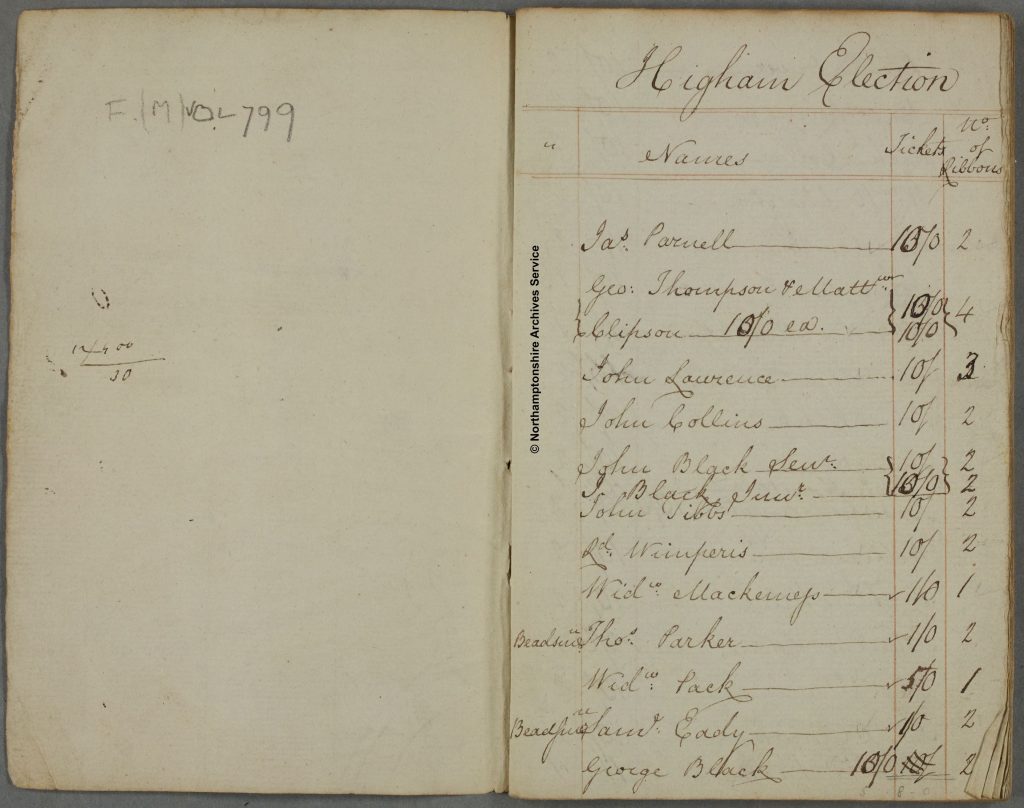 F (M) VOL 799
10
© Northamptonshire Archives Service
Higham Election
" Names Tickets No. of Ribbons
Jas. Parnell 10/0 2
Geo: Thompson & Mattw
Clipson 10/0 ea. 10/0 10/0 4
John Lawrence 10/ 3
John Collins 10/ 2
John Black Senr. 10/ 2
J. Black Junr. 10/0 2
John Tibbs 10/ 2
Rd. Wimperis 10/ 2
Widw. Mackemess 1/0 1
Beadsmn Thos. Parker 1/0 2
Widw. Pack 5/0 1
Beadsmn Saml. Eady 1/0 2
George Black 10/0 10/ 2